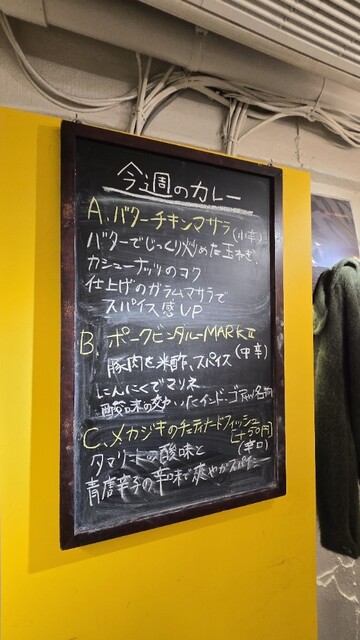 今週のカレー
A. バターチキンマサラ (小辛)
バターでじっくり炒めた玉ねぎ、
カシューナッツのコク
仕上げのガラムマサラで
スパイス感UP
B. ポークビンダルーMARKⅡ
豚肉を米酢、スパイス (中辛)
にんにくでマリネ
酸味の効いたインド・ゴアの名物
C. メカジキのチェティナードフィッシュ
[+50円]
(辛口)
タマリンドの酸味と
青唐辛子の辛味で爽やかスパイシー